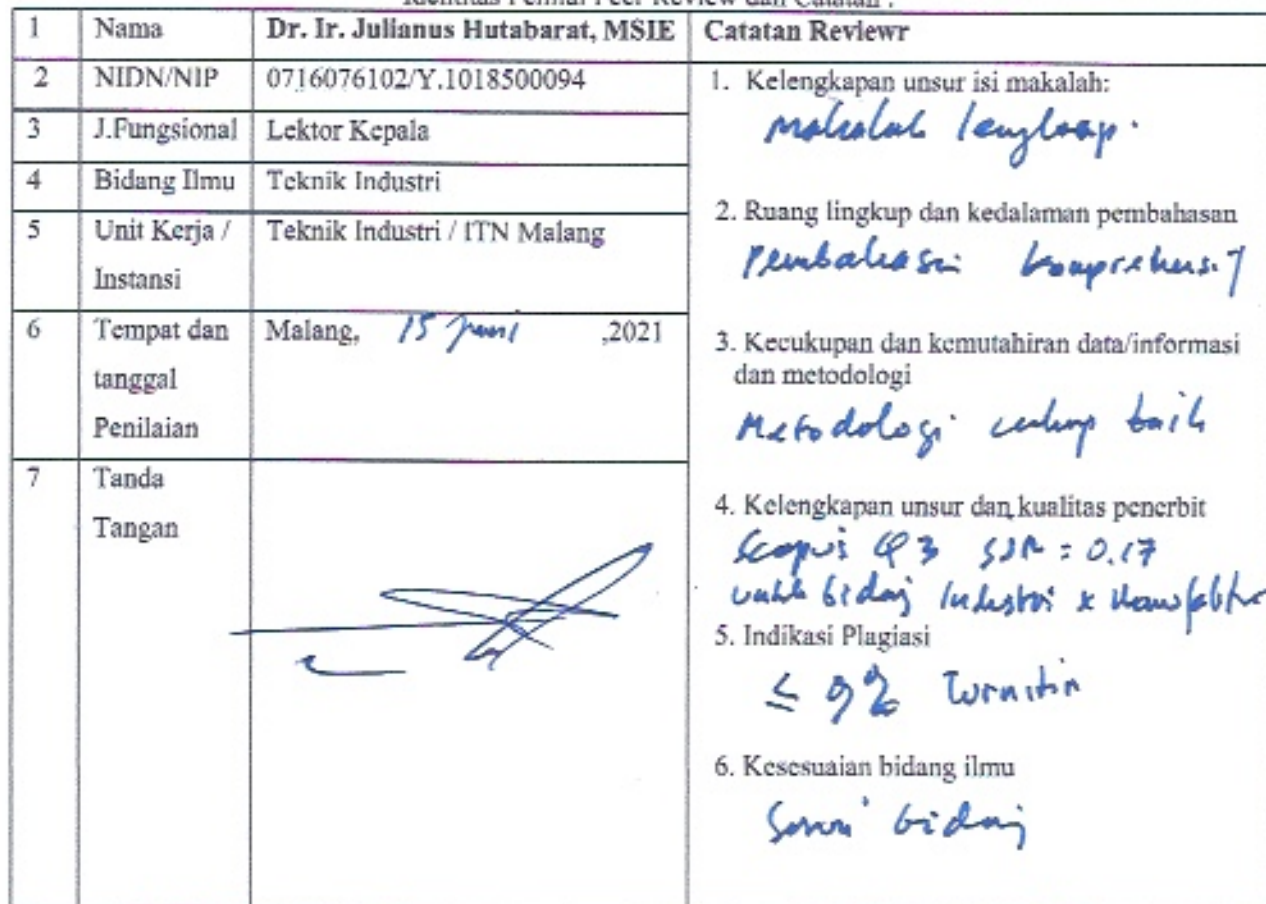 Identitas Penilai Peer Review dan Catatan :
1 Nama Dr. Ir. Julianus Hutabarat, MSIE
2 NIDN/NIP 0716076102/Y.1018500094
3 J.Fungsional Lektor Kepala
4 Bidang Ilmu Teknik Industri
5 Unit Kerja / Teknik Industri / ITN Malang
Instansi
6 Tempat dan Malang, 15 Juni ,2021
tanggal
Penilaian
7 Tanda
Tangan
Catatan Reviewr
1. Kelengkapan unsur isi makalah:
Makalah lengkap.
2. Ruang lingkup dan kedalaman pembahasan
Pembahasan komprehensif
3. Kecukupan dan kemutahiran data/informasi
dan metodologi
Metodologi cukup baik
4. Kelengkapan unsur dan kualitas penerbit
Scopus Q3 SJR = 0.17
untuk bidang Industri & Manufaktur
5. Indikasi Plagiasi
≤ 9% Turnitin
6. Kesesuaian bidang ilmu
Sesuai bidang